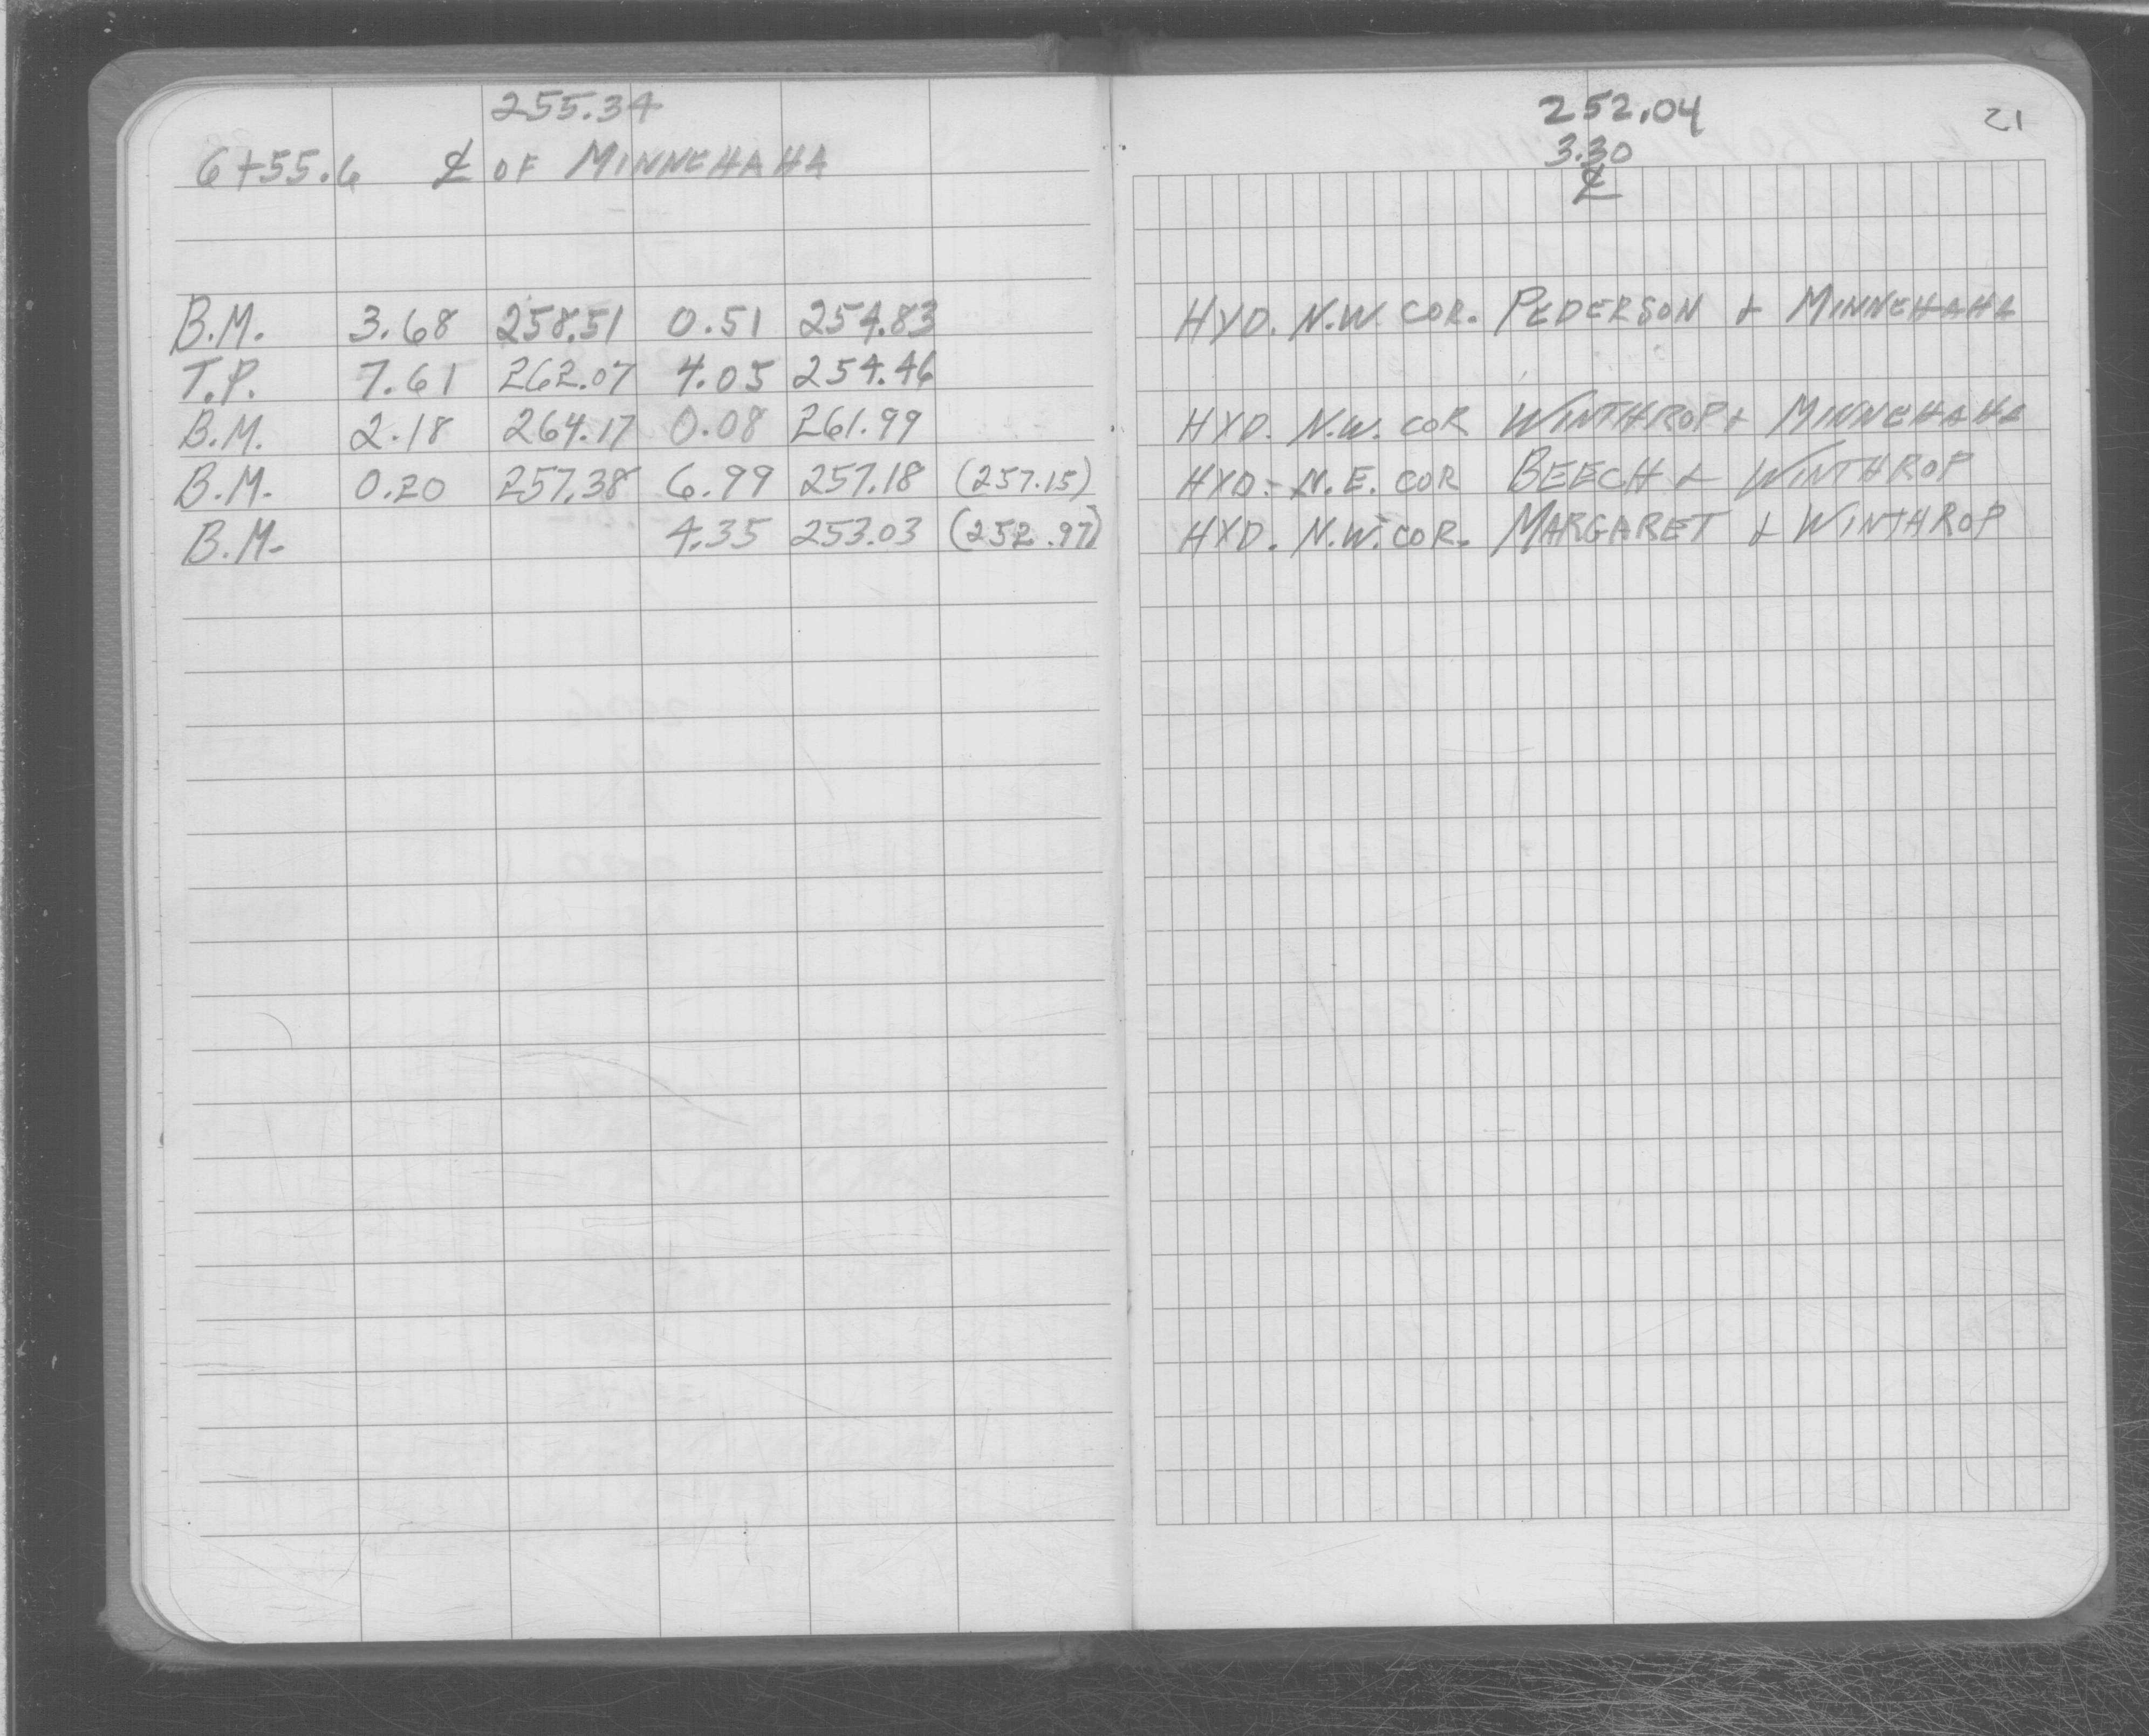 255.34
6+55.6 ℄ OF MINNEHAHA
B.M. 3.68 258.51 0.51 254.83
T.P. 7.61 262.07 4.05 254.46
B.M. 2.18 264.17 0.08 261.99
B.M. 0.20 257.38 6.99 257.18 (257.15)
B.M. 4.35 253.03 (252.97)
21
252.04
3.30
℄
HYD. N.W. COR. PEDERSON & MINNEHAHA
HYD. N.W. COR WINTHROP & MINNEHAHA
HYD. N.E. COR BEECH & WINTHROP
HYD. N.W. COR. MARGARET & WINTHROP